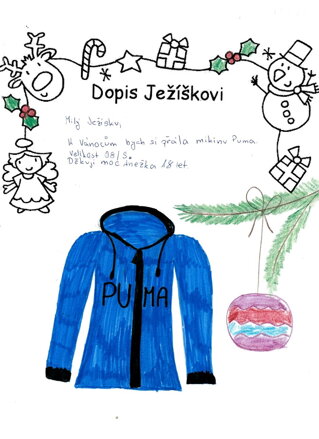 Dopis Ježíškovi
Milý Ježísku,
k Vánocům bych si přála mikinu Puma.
Velikost 98/S.
Děkuji moc Anežka 18 let
PUMA